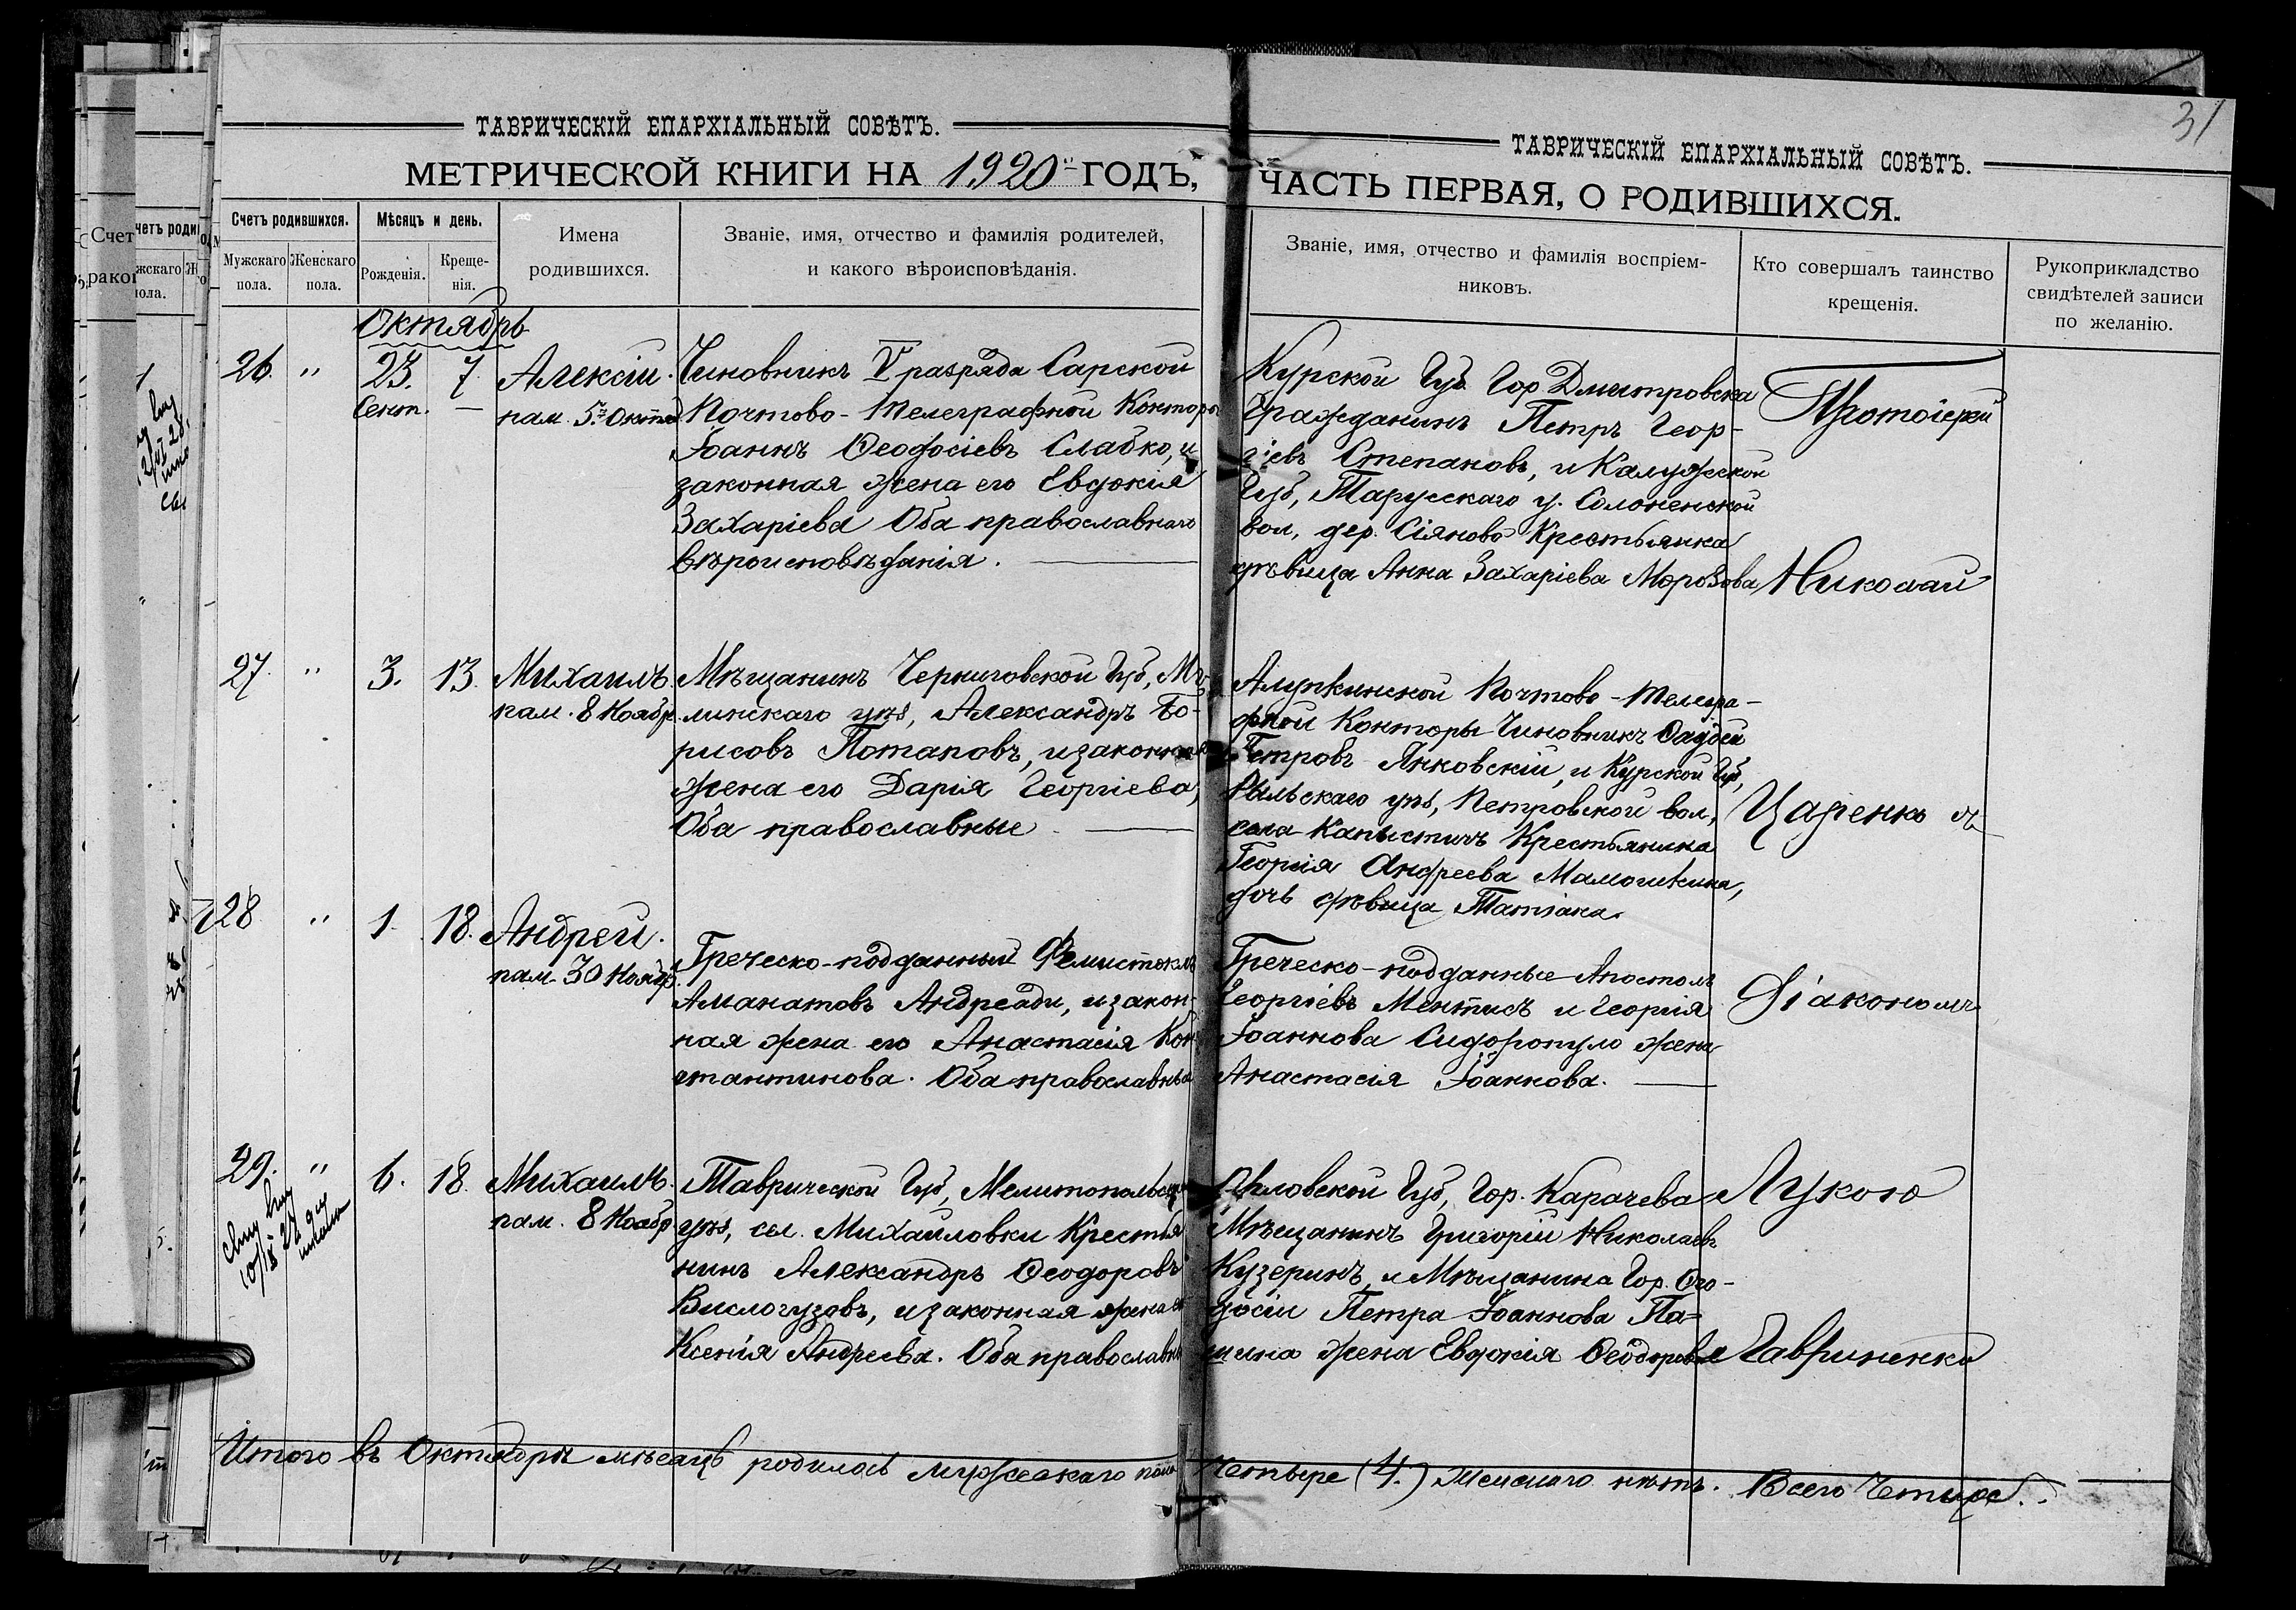 31
ТАВРИЧЕСКІЙ ЕПАРХІАЛЬНЫЙ СОВѢТЪ.
МЕТРИЧЕСКОЙ КНИГИ НА 1920й ГОДЪ,
ТАВРИЧЕСКІЙ ЕПАРХІАЛЬНЫЙ СОВѢТЪ.
ЧАСТЬ ПЕРВАЯ, О РОДИВШИХСЯ.
Счетъ родившихся.
Мужскаго пола.
Женскаго пола.
Мѣсяцъ и день.
Рожденія.
Креще-
нія.
Имена
родившихся.
Званіе, имя, отчество и фамилія родителей,
и какого вѣроисповѣданія.
Званіе, имя, отчество и фамилія воспріем-
никовъ.
Кто совершалъ таинство
крещенія.
Рукоприкладство
свидѣтелей записи
по желанію.
Октябрь
26. " 23. 7
Сент. —
Алексій.
пам. 5го Октяб
Чиновникъ V разряда Сарской
Почтово-Телеграфной Конторы
Іоаннъ Ѳеодосіевъ Слабко, и
законная жена его Евдокія
Захаріева Оба православнаго
вѣроисповѣданія.
Курской Губ. Гор Дмитровска
Гражданинъ Петръ Геор-
гіевъ Степановъ, и Калужской
Губ, Тарусскаго у. Солопенской
вол, дер. Сіяново Крестьянка
дѣвица Анна Захаріева Морозова
Протоіерей
Николай
27. " 3. 13.
Михаилъ.
пам. 8 Ноябр.
Мѣщанинъ Черниговской Губ, Мг
линскаго уѣз, Александръ Бо-
рисовъ Потаповъ, и законная
жена его Дарія Георгіева,
Оба православные
Алупкинской Почтово-Телегра-
фной Конторы Чиновникъ
Петровъ Янковскій, и Курской Губ,
Рыльскаго уѣз, Петровской вол,
села Капыстичъ Крестьянина
Георгія Андреева Мамошкина,
дочь дѣвица Татіана.
Царенко съ
28 " 1. 18.
Андрей.
пам. 30 Ноябр.
Греческо-подданный Ѳемистокль
Аманатовъ Андреади, и закон-
ная жена его Анастасія Кон
стантинова. Оба православные
Греческо-подданные Апостолъ
Георгіевъ Ментисъ и Георгія
Іоаннова Сидоропуло жена
Анастасія Іоаннова.
Діакономъ
29. " 6. 18.
Михаилъ.
пам. 8 Ноябр.
Таврической Губ, Мелитопольскаго
уѣз, сел. Михайловки Крестья
нинъ Александръ Ѳеодоровъ
Вислогузовъ, и законная жена его
Ксенія Андреева. Оба православн
Орловской Губ, Гор. Карачева
Мѣщанинъ Григорій Николаевъ
Кузеринъ, и Мѣщанина Гор. Ѳео-
досіи Петра Іоаннова Па-
шина жена Евдокія Ѳеодорова
Лукою
Гавриненко
Итого въ Октябрѣ мѣсяцѣ родилось мужескаго пола Четыре (4.) Женскаго нѣтъ. Всего Четыре.